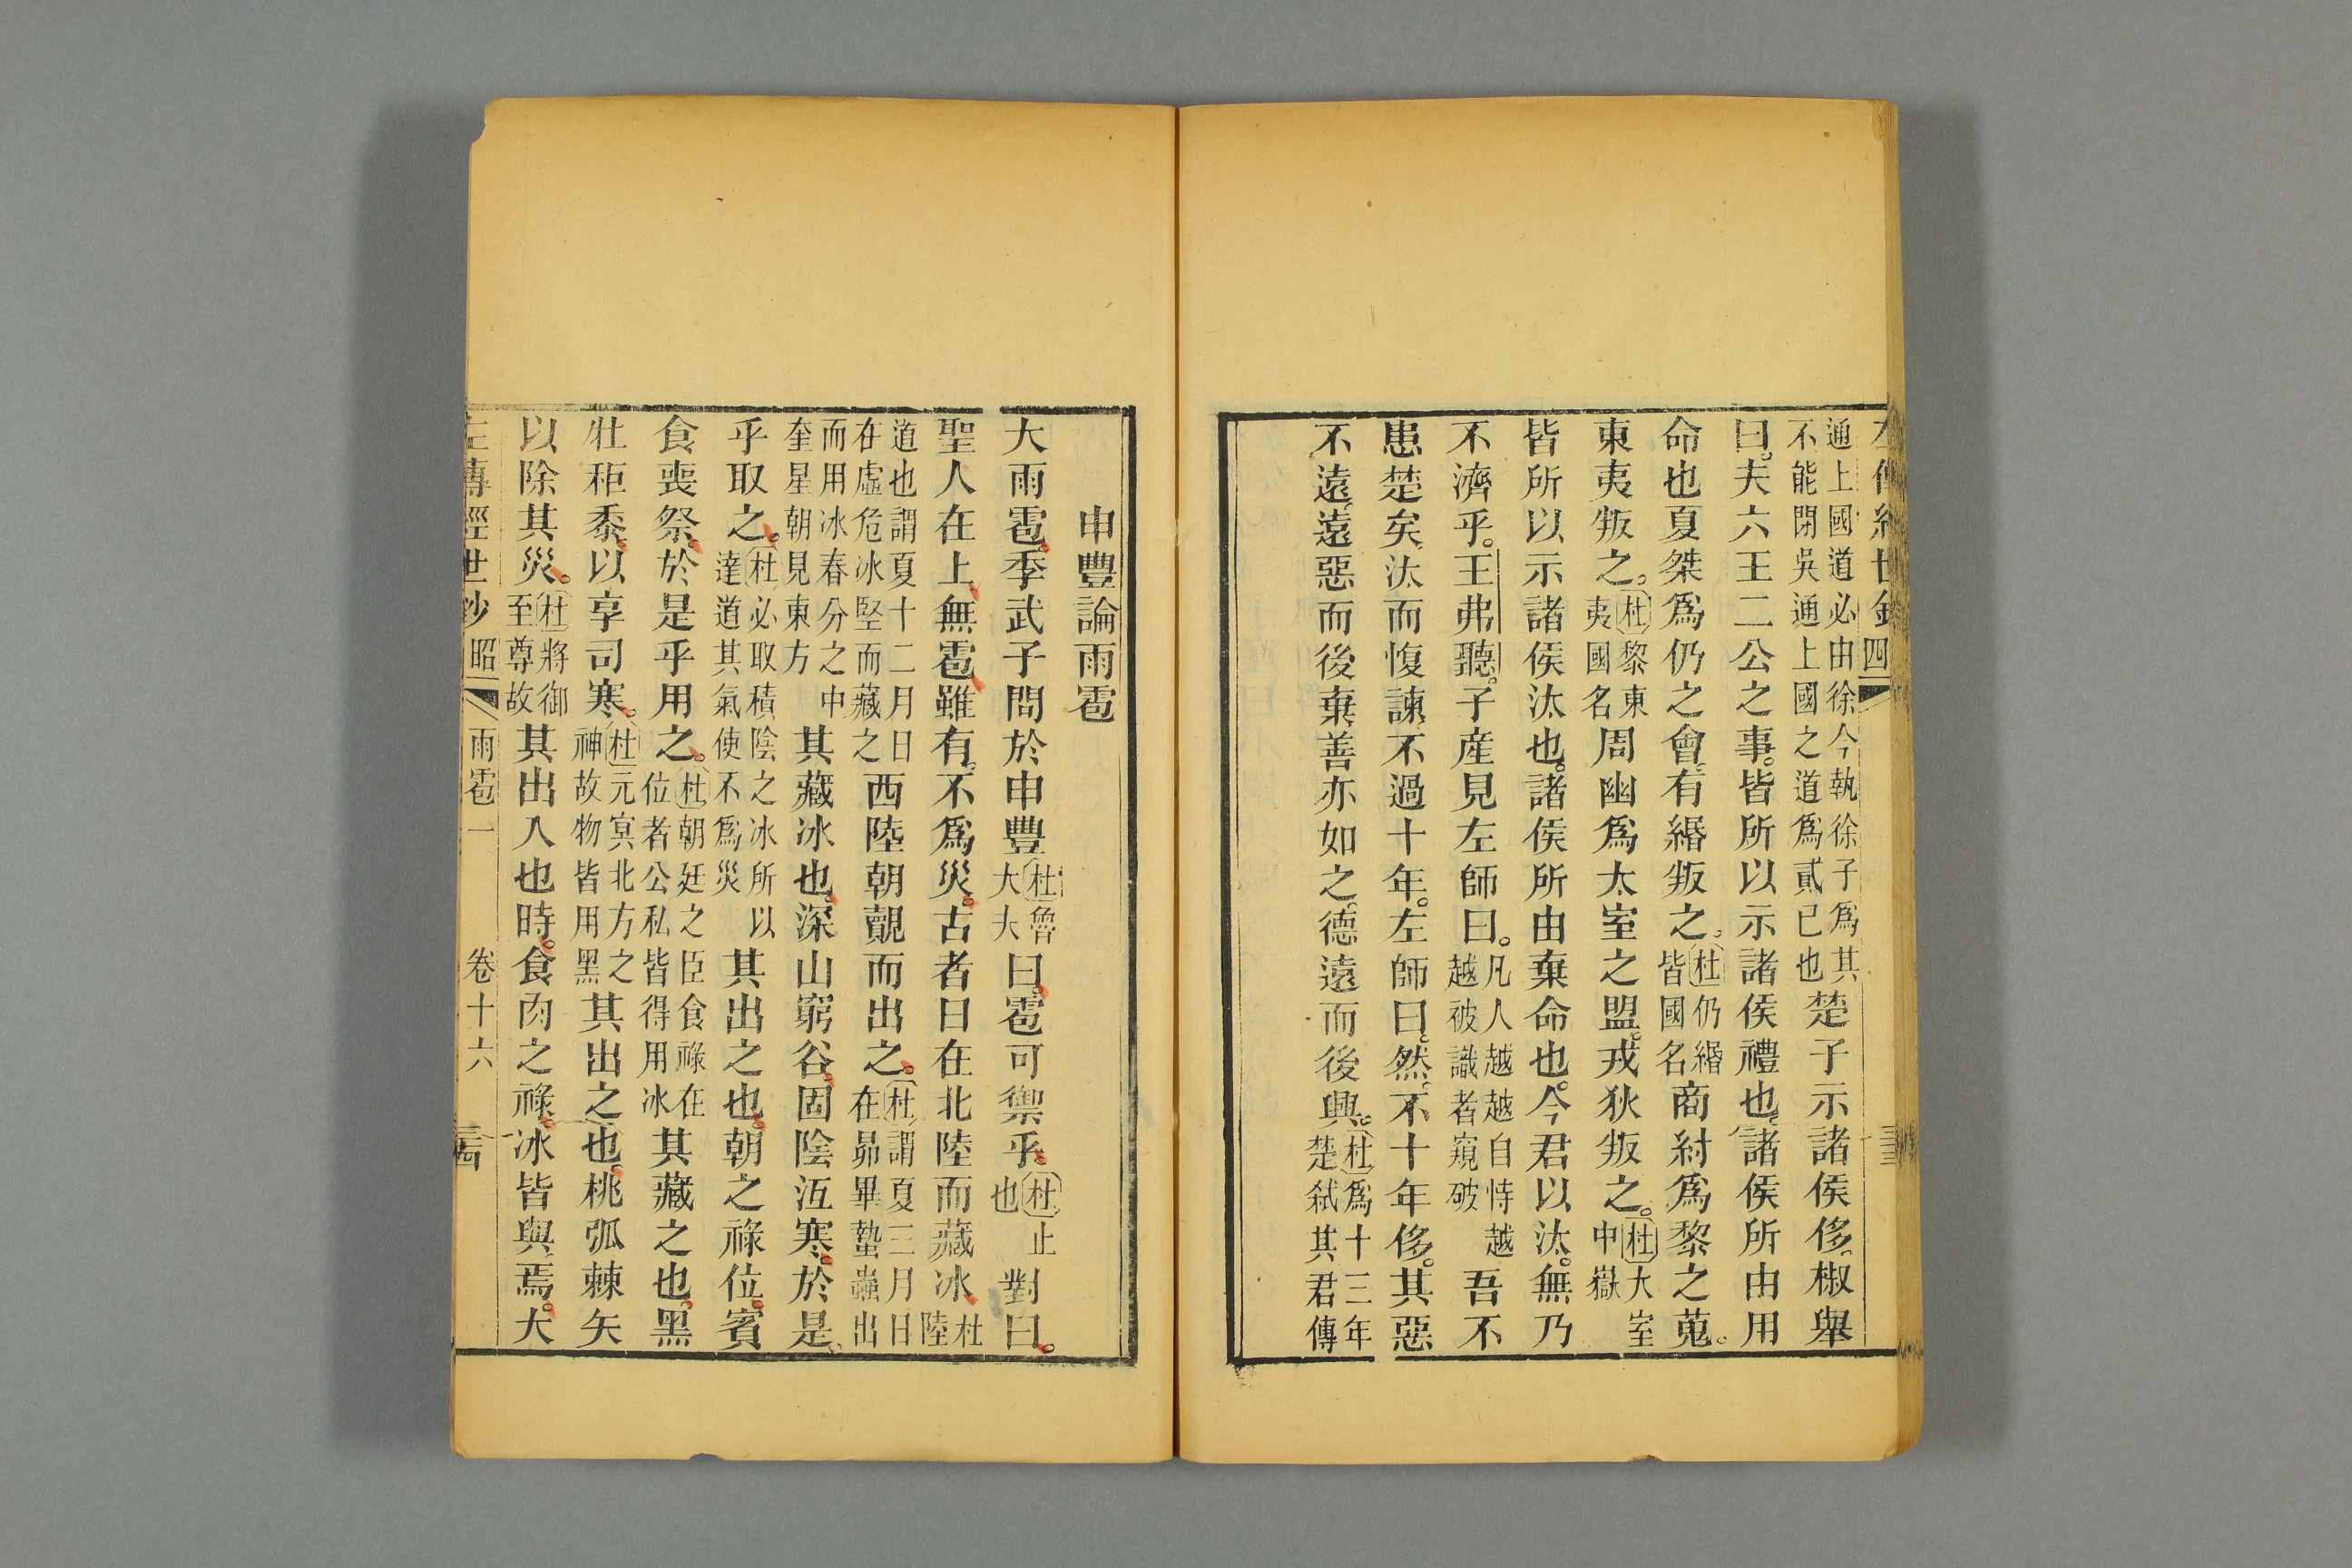 通上國道必由徐今執徐子爲其
不能閉吳通上國之道爲貳已也
楚子示諸侯侈椒舉
曰夫六王二公之事皆所以示諸侯禮也諸侯所由用
命也夏桀爲仍之會有緡叛之
杜仍緡
皆國名
商紂爲黎之蒐
東夷叛之
杜黎東
夷國名
周幽爲太室之盟戎狄叛之
杜大室
中嶽
皆所以示諸侯汰也諸侯所由棄命也今君以汰無乃
不濟乎王弗聽子產見左師曰
凡人越越自恃越
越被識者窺破
吾不
患楚矣汰而愎諫不過十年左師曰然不十年侈其惡
不遠遠惡而後棄善亦如之德遠而後興
杜爲十三年
楚弑其君傳
申豐論雨雹
大雨雹季武子問於申豐
杜魯
大夫
曰雹可禦乎
杜止
也
對曰
聖人在上無雹雖有不爲災古者日在北陸而藏冰
杜
陸
道也謂夏十二月日
在虛危冰堅而藏之
西陸朝覿而出之
杜謂夏三月日
在昴畢蟄蟲出
而用冰春分之中
奎星朝見東方
其藏冰也深山窮谷固陰沍寒於是
乎取之
杜必取積陰之冰所以
達道其氣使不爲災
其出之也朝之祿位賓
食喪祭於是乎用之
杜朝廷之臣食祿在
位者公私皆得用冰
其藏之也黑
牡秬黍以享司寒
杜元冥北方之
神故物皆用黑
其出之也桃弧棘矢
以除其災
杜將御
至尊故
其出入也時食肉之祿冰皆與焉大
左傳經世鈔 昭 雨雹一 卷十六